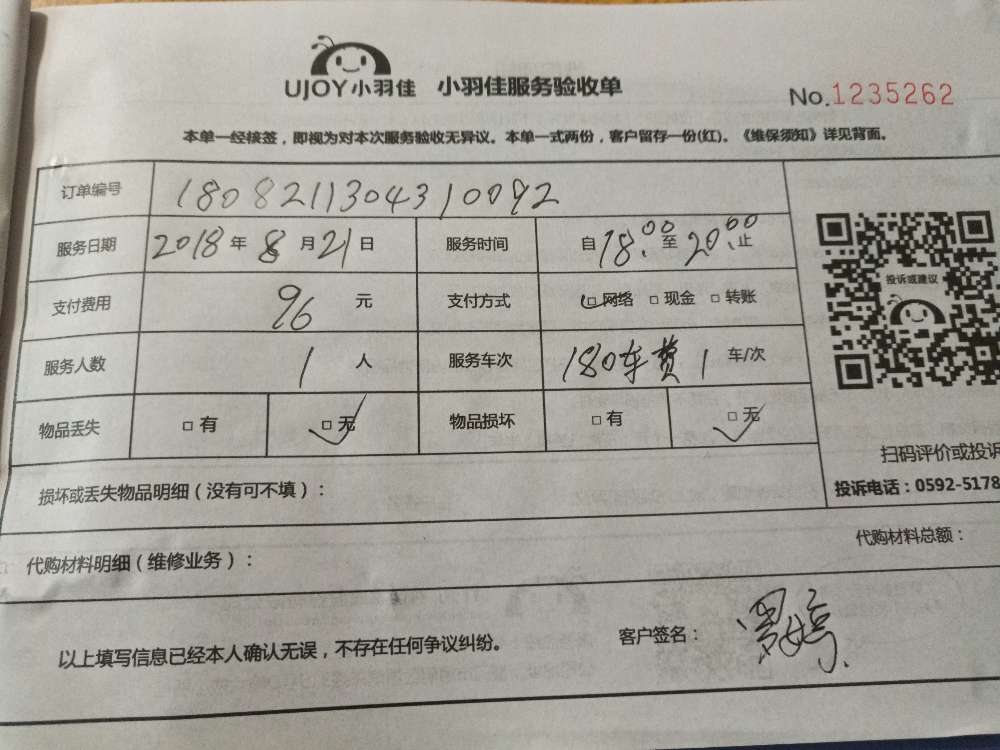 UJOY小羽佳 小羽佳服务验收单
No.1235262
本单一经核签，即视为对本次服务验收无异议。本单一式两份，客户留存一份(红)。《维保须知》详见背面。
订单编号 1808211304310092
服务日期 2018年8月21日 服务时间 自18:00至20:00止
支付费用 96元 支付方式 □网络 □现金 □转账
投诉或建议
服务人数 1人 服务车次 180车费1车/次
物品丢失 □有 □无 物品损坏 □有 □无
扫码评价或投诉
投诉电话：0592-5178
损坏或丢失物品明细（没有可不填）：
代购材料明细（维修业务）： 代购材料总额：
以上填写信息已经本人确认无误，不存在任何争议纠纷。 客户签名：